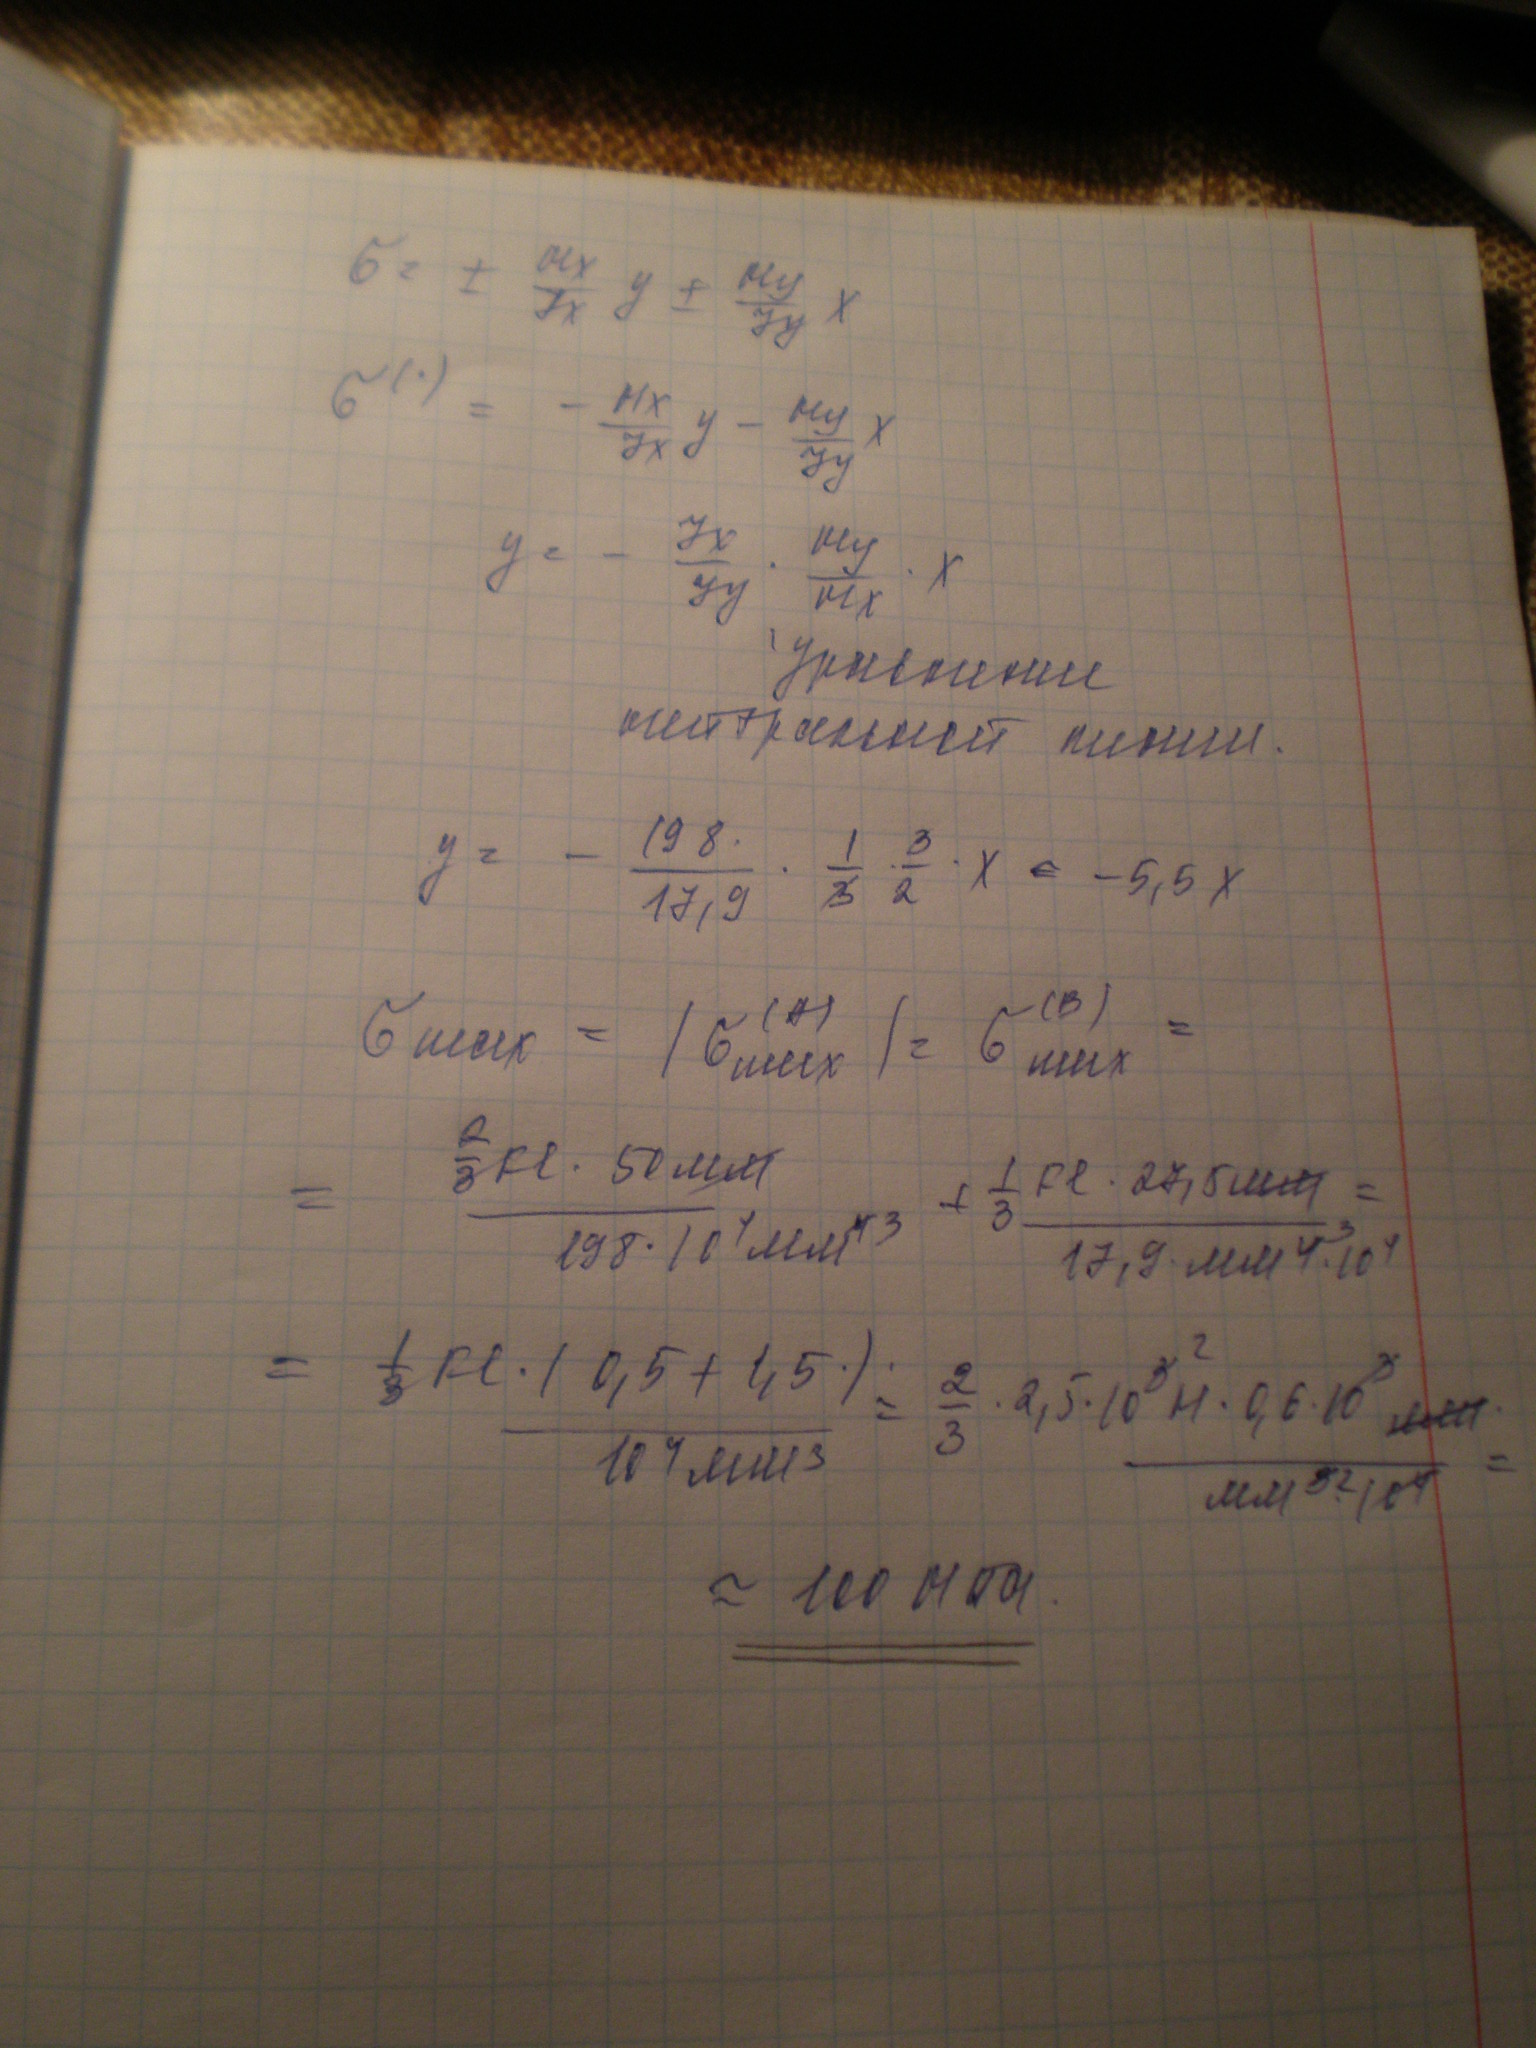 σ = ± Mx/Jx y ± My/Jy x
σ^(·) = - Mx/Jx y - My/Jy x
y = - Jx/Jy · My/Mx · x
Уравнение
нейтральной линии.
y = - 198·/17,9 · 1/3 · 3/2 · x = -5,5 x
σmax = |σmax^(A)| = σmax^(B) =
= 2/3 Fl · 50мм / 198·10^4 мм^4 3 + 1/3 Fl · 27,5мм / 17,9·мм^4 3·10^4 =
= 1/3 Fl·(0,5+1,5·)· / 10^4 мм3 = 2/3 · 2,5·10^3 2 Н · 0,6·10^3 мм· / мм^3 2·10^4 =
≈ 100 МПа.